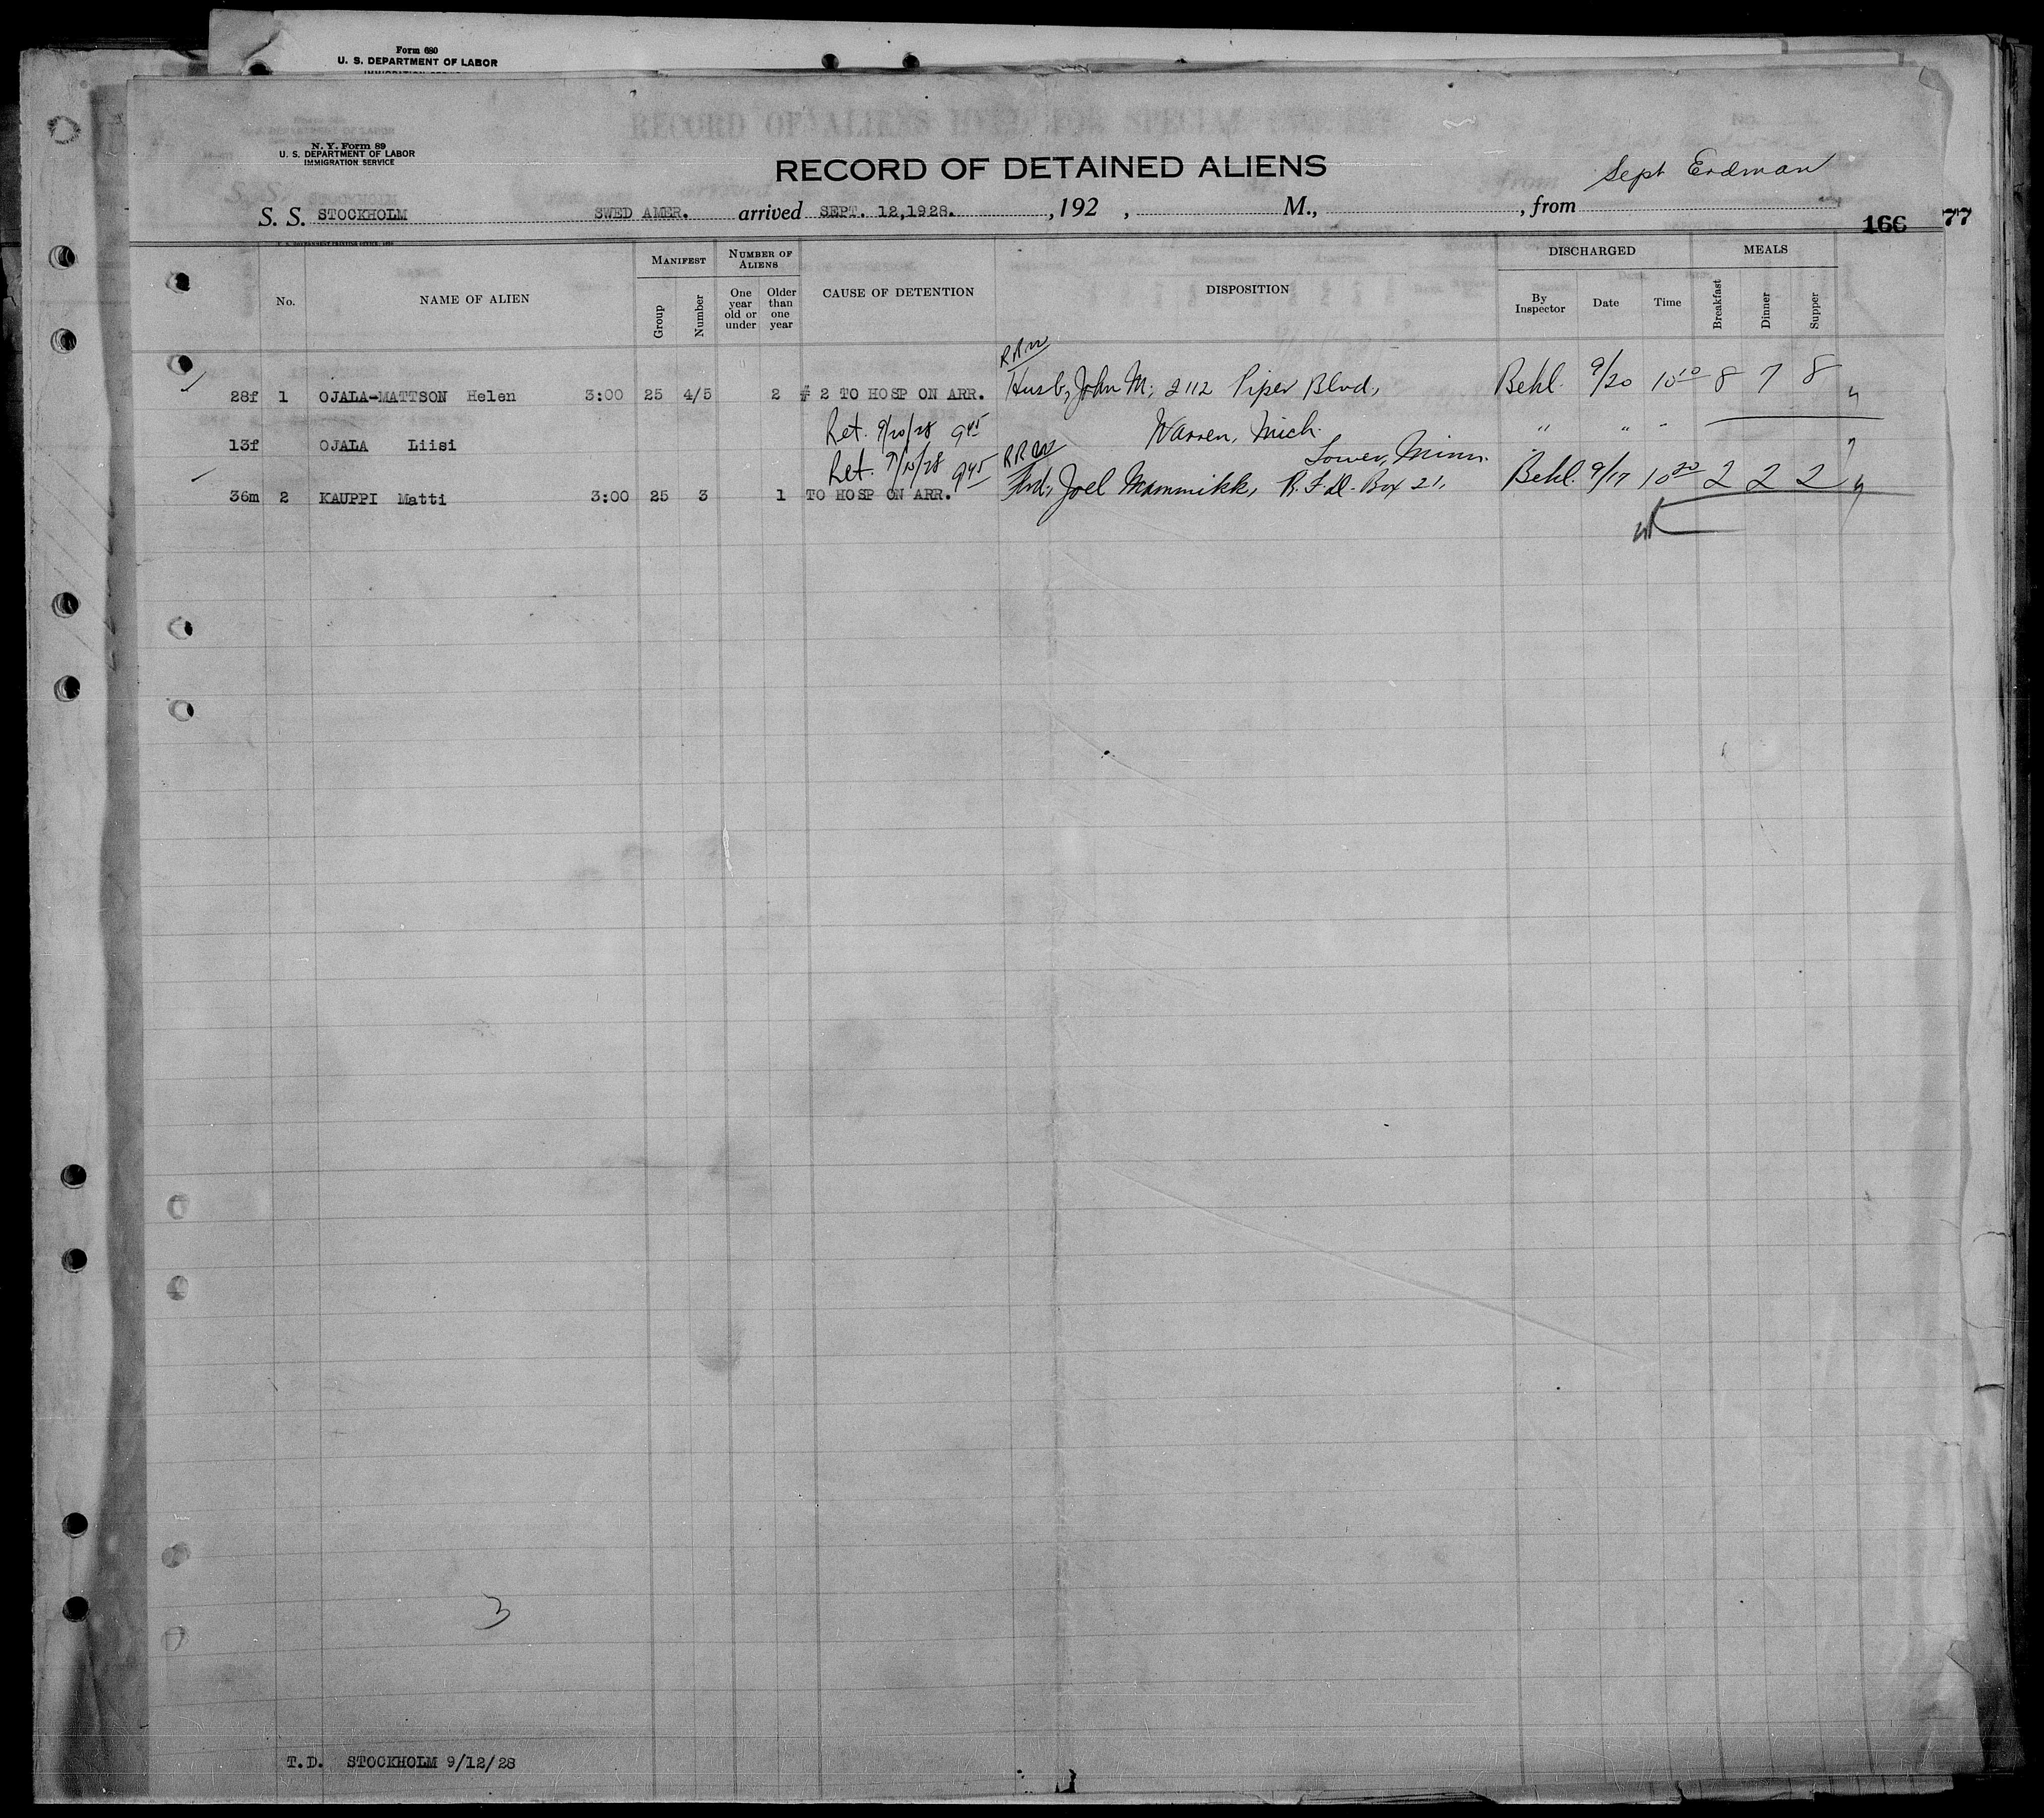 Form 680
U. S. DEPARTMENT OF LABOR
N. Y. Form 89
U. S. DEPARTMENT OF LABOR
IMMIGRATION SERVICE
RECORD OF DETAINED ALIENS
Sept Erdman
S. S. STOCKHOLM SWED AMER. arrived SEPT. 12,1928. , 192 , M., , from
166 77
No. NAME OF ALIEN MANIFEST Group Number NUMBER OF ALIENS One year old or under Older than one year CAUSE OF DETENTION DISPOSITION DISCHARGED By Inspector Date Time MEALS Breakfast Dinner Supper
28f 1 OJALA-MATTSON Helen 3:00 25 4/5 2 # 2 TO HOSP ON ARR. Husb, John M; 2112 Piper Blvd, Behl. 9/20 10 10 8 7 8
Ret. 9/20/28 9 45 Warren, Mich. " " "
13f OJALA Liisi
Ret. 9 45 Minn.
36m 2 KAUPPI Matti 3:00 25 3 1 TO HOSP ON ARR. Joel Mammikk, R.F.D. Box 21, Behl. 9/17 10 20 2 2 2
3
T.D. STOCKHOLM 9/12/28